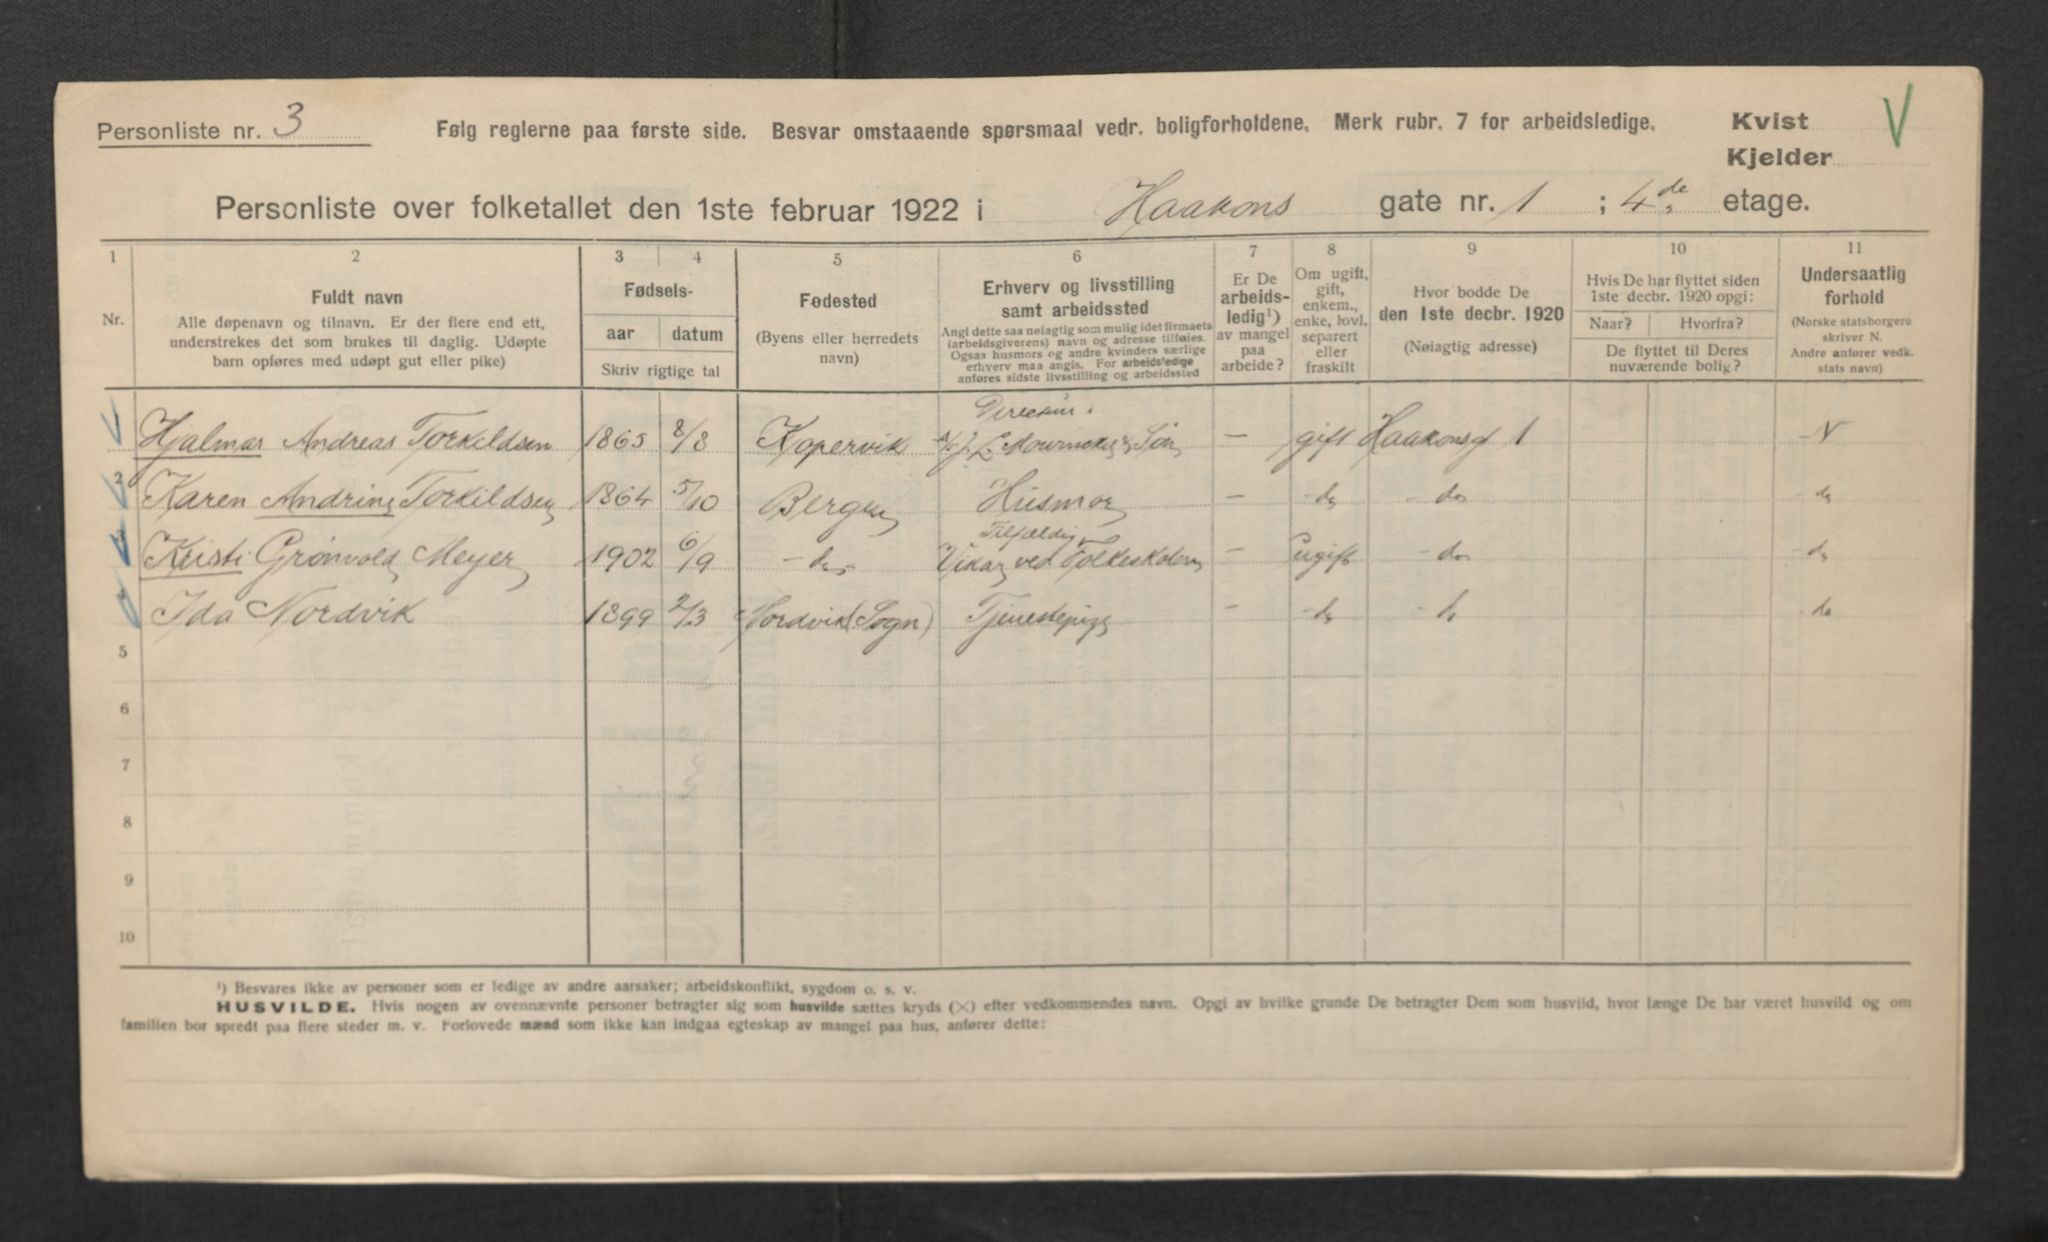 Personliste nr. 3
Følg reglerne paa første side. Besvar omstaaende spørsmaal vedr. boligforholdene. Merk rubr. 7 for arbeidsledige.
Kvist
Kjelder
V
Personliste over folketallet den 1ste februar 1922 i Haakons gate nr. 1 ; 4de etage.
1 2 3 4 5 6 7 8 9 10 11
Nr.
Fuldt navn
Alle døpenavn og tilnavn. Er der flere end ett,
understrekes det som brukes til daglig. Udøpte
barn opføres med udøpt gut eller pike)
Fødsels-
aar datum
Skriv rigtige tal
Fødested
(Byens eller herredets
navn)
Erhverv og livsstilling
samt arbeidssted
Angi dette saa nøiagtig som mulig idet firmaets
(arbeidsgiverens) navn og adresse tilføies.
Ogsaa husmors og andre kvinders særlige
erhverv maa angis. For arbeidsledige
anføres sidste livsstilling og arbeidssted
Er De
arbeids-
ledig¹)
av mangel
paa
arbeide?
Om ugift,
gift,
enkem.,
enke, lovl.
separert
eller
fraskilt
Hvor bodde De
den 1ste decbr. 1920
(Nøiagtig adresse)
Hvis De har flyttet siden
1ste decbr. 1920 opgi:
Naar? Hvorfra?
De flyttet til Deres
nuværende bolig?
Undersaatlig
forhold
(Norske statsborgere
skriver N.
Andre anfører vedk.
stats navn)
1 Hjalmar Andreas Torkildsen 1865 8/8 Kopervik Direktør i A/S J. E. & Søn — gift Haakonsgt 1 N
2 Karen Andrine Torkildsen 1864 5/10 Bergen Husmor — do do do
3 Kristi Grønvold Meyer 1902 6/9 do Tilfældig Vikar ved Folkeskolen — ugift do do
Ida Nordvik 1899 2/3 Nordvik (Sogn) Tjenestepige — do do do
5
6
7
8
9
10
¹) Besvares ikke av personer som er ledige av andre aarsaker; arbeidskonflikt, sygdom o. s. v.
HUSVILDE. Hvis nogen av ovennævnte personer betragter sig som husvilde sættes kryds (×) efter vedkommendes navn. Opgi av hvilke grunde De betragter Dem som husvild, hvor længe De har været husvild og om
familien bor spredt paa flere steder m. v. Forlovede mænd som ikke kan indgaa egteskap av mangel paa hus, anfører dette: